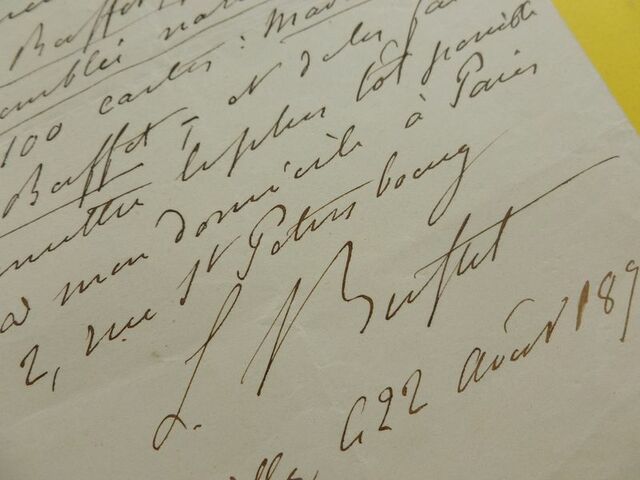 Buffet
100 cartes : Mad
Buffet - et de les fa
mettre le plus tôt possible
à mon domicile à Paris
2, rue St Petersbourg
L. Buffet
le 22 août 189